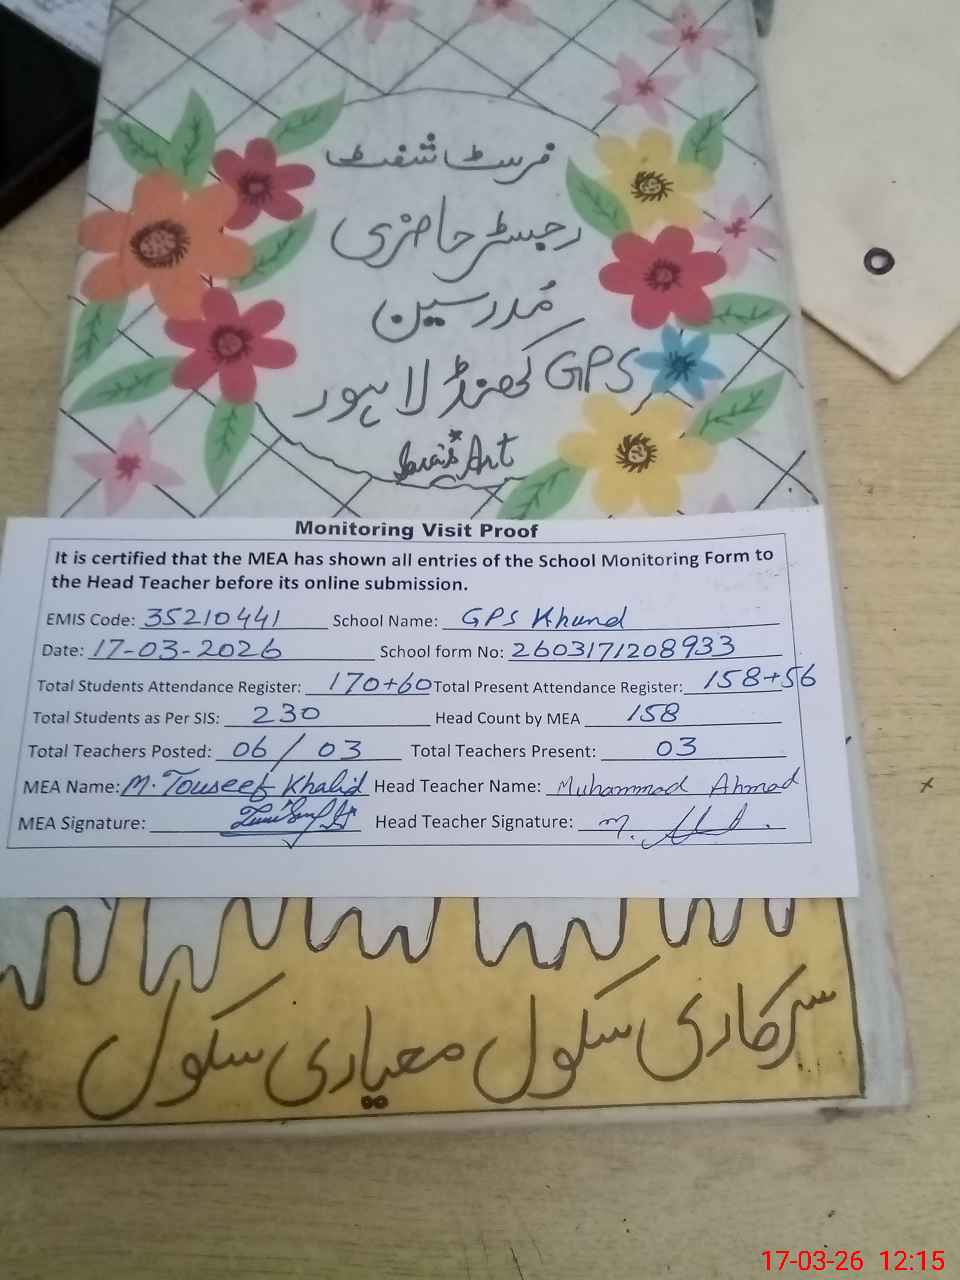 فرسٹ شفٹ
رجسٹر حاضری
مُدرسین
GPS کھنڈ لاہور
Sara's Art
Monitoring Visit Proof
It is certified that the MEA has shown all entries of the School Monitoring Form to
the Head Teacher before its online submission.
EMIS Code: 35210441 School Name: GPS Khund
Date: 17-03-2026 School form No: 2603171208933
Total Students Attendance Register: 170+60 Total Present Attendance Register: 158+56
Total Students as Per SIS: 230 Head Count by MEA 158
Total Teachers Posted: 06 / 03 Total Teachers Present: 03
MEA Name: M. Touseef Khalid Head Teacher Name: Muhammad Ahmad
MEA Signature: Head Teacher Signature:
سرکاری سکول معیاری سکول
17-03-26 12:15